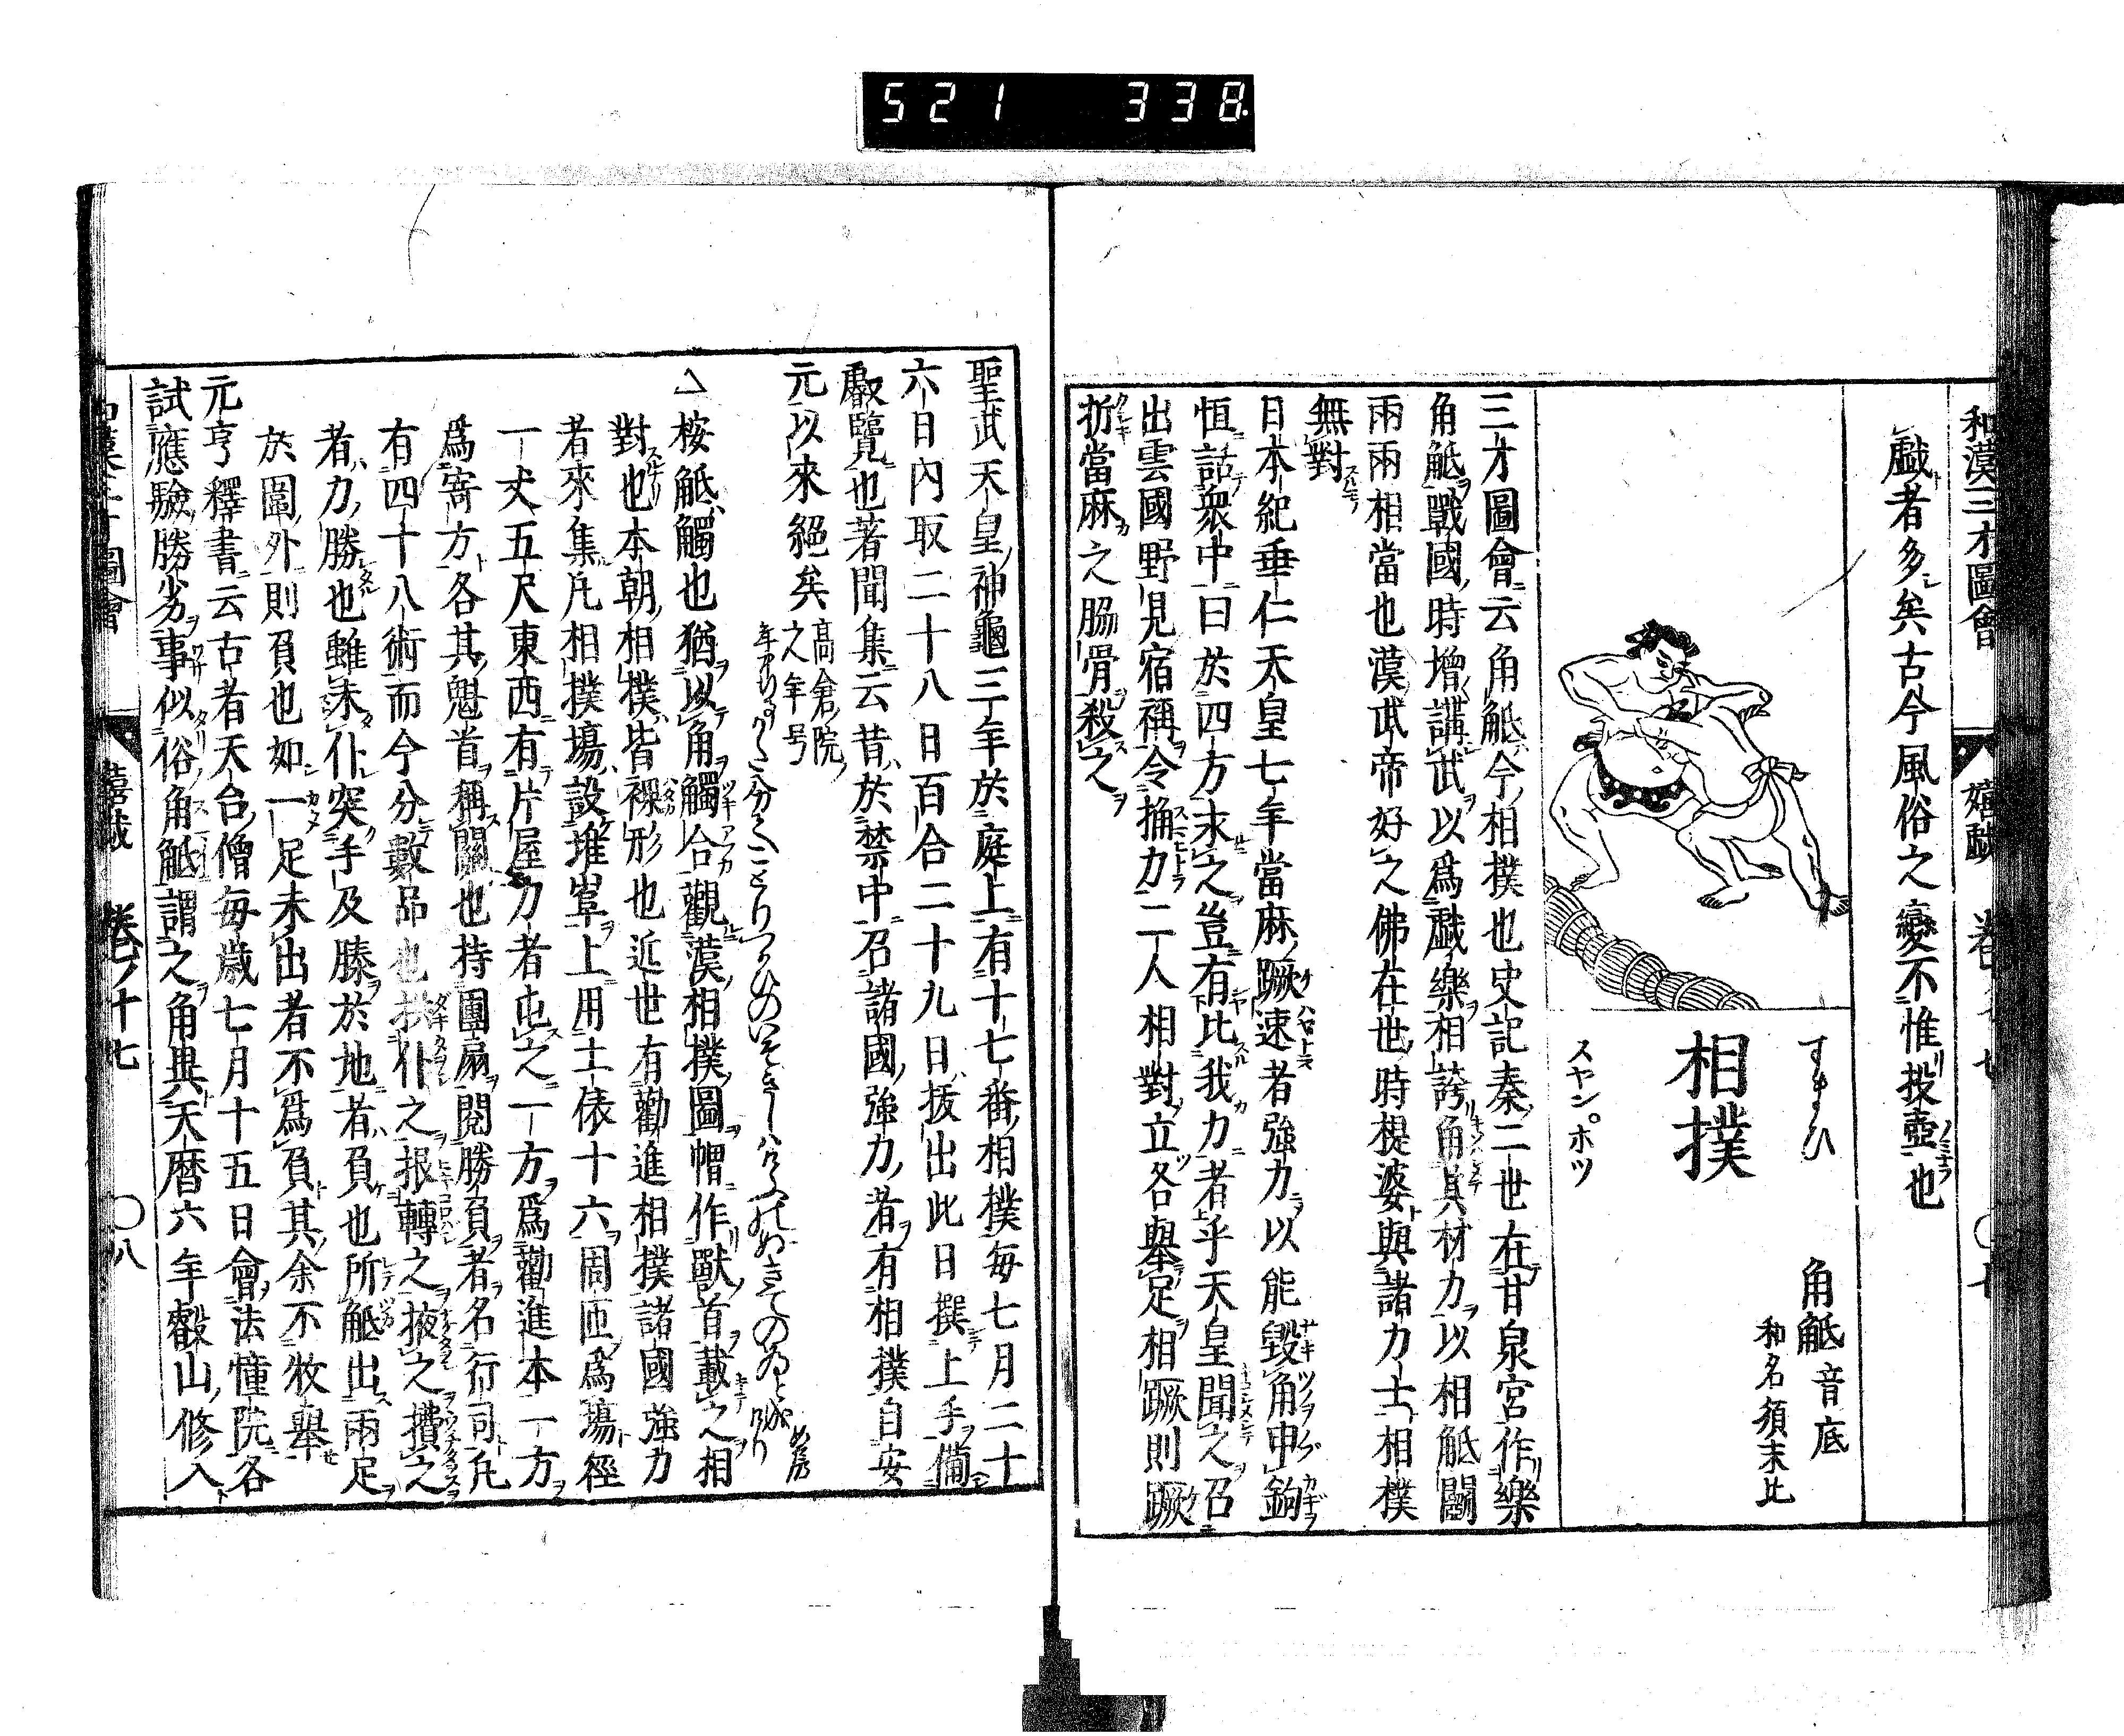 521 338
和漢三才圖會 嬉戯 巻ノ十七 〇七
戯者多矣古今風俗之變不惟投壺也
すまひ
相撲
スヤンポツ
角觝 音底
和名須末比
三才圖會云角觝今相撲也史記秦二世在甘泉宮作樂
角觝戰國時増講武以爲戯樂相誇角其材力以相觝鬭
兩兩相當也漢武帝好之佛在世時提婆與諸力士相撲
無對
日本紀垂仁天皇七年當麻蹶速者強力以能毀角申鉤
恒語衆中曰於四方求之豈有比我力者乎天皇聞之召
出雲國野見宿禰令捔力二人相對立各擧足相蹶則蹶
折當麻之脇骨殺之
聖武天皇神龜三年於庭上有十七番相撲毎七月二十
六日内取二十八日百合二十九日拔出此日撰上手備
叡覽也著聞集云昔於禁中召諸國強力者有相撲自安
元以來絕矣 高倉院之年号
△桉觝觸也猶以角觸合觀漢相撲圖帽作獸首載之相
對也本朝相撲皆裸形也近世有勸進相撲諸國強力
者來集凢相撲場設堆塠上用土俵十六周匝爲場徑
一丈五尺東西有片屋力者屯之一方爲勸進本一方
爲寄方各其魁首稱關也持團扇閱勝負者名行司凢
有四十八術而今分數品也 仆之 轉之 之 之
者力勝也雖未仆突手及膝於地者負也所觝出兩足
於圍外則負也如一足未出者不爲負其余不枚擧
元亨釋書云古者天台僧毎歳七月十五日會法幢院各
試應驗勝劣事似俗角觝謂之角與天曆六年叡山修入
和漢三才圖會 嬉戯 巻ノ十七 〇八